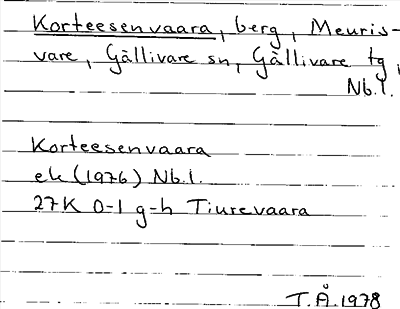 Korteesenvaara, berg, Meuris-
vare, Gällivare sn, Gällivare tg,
Nb.l.
Korteesenvaara
ek (1976) Nb.l.
27K 0-1 g-h Tiurevaara
T.Å.1978